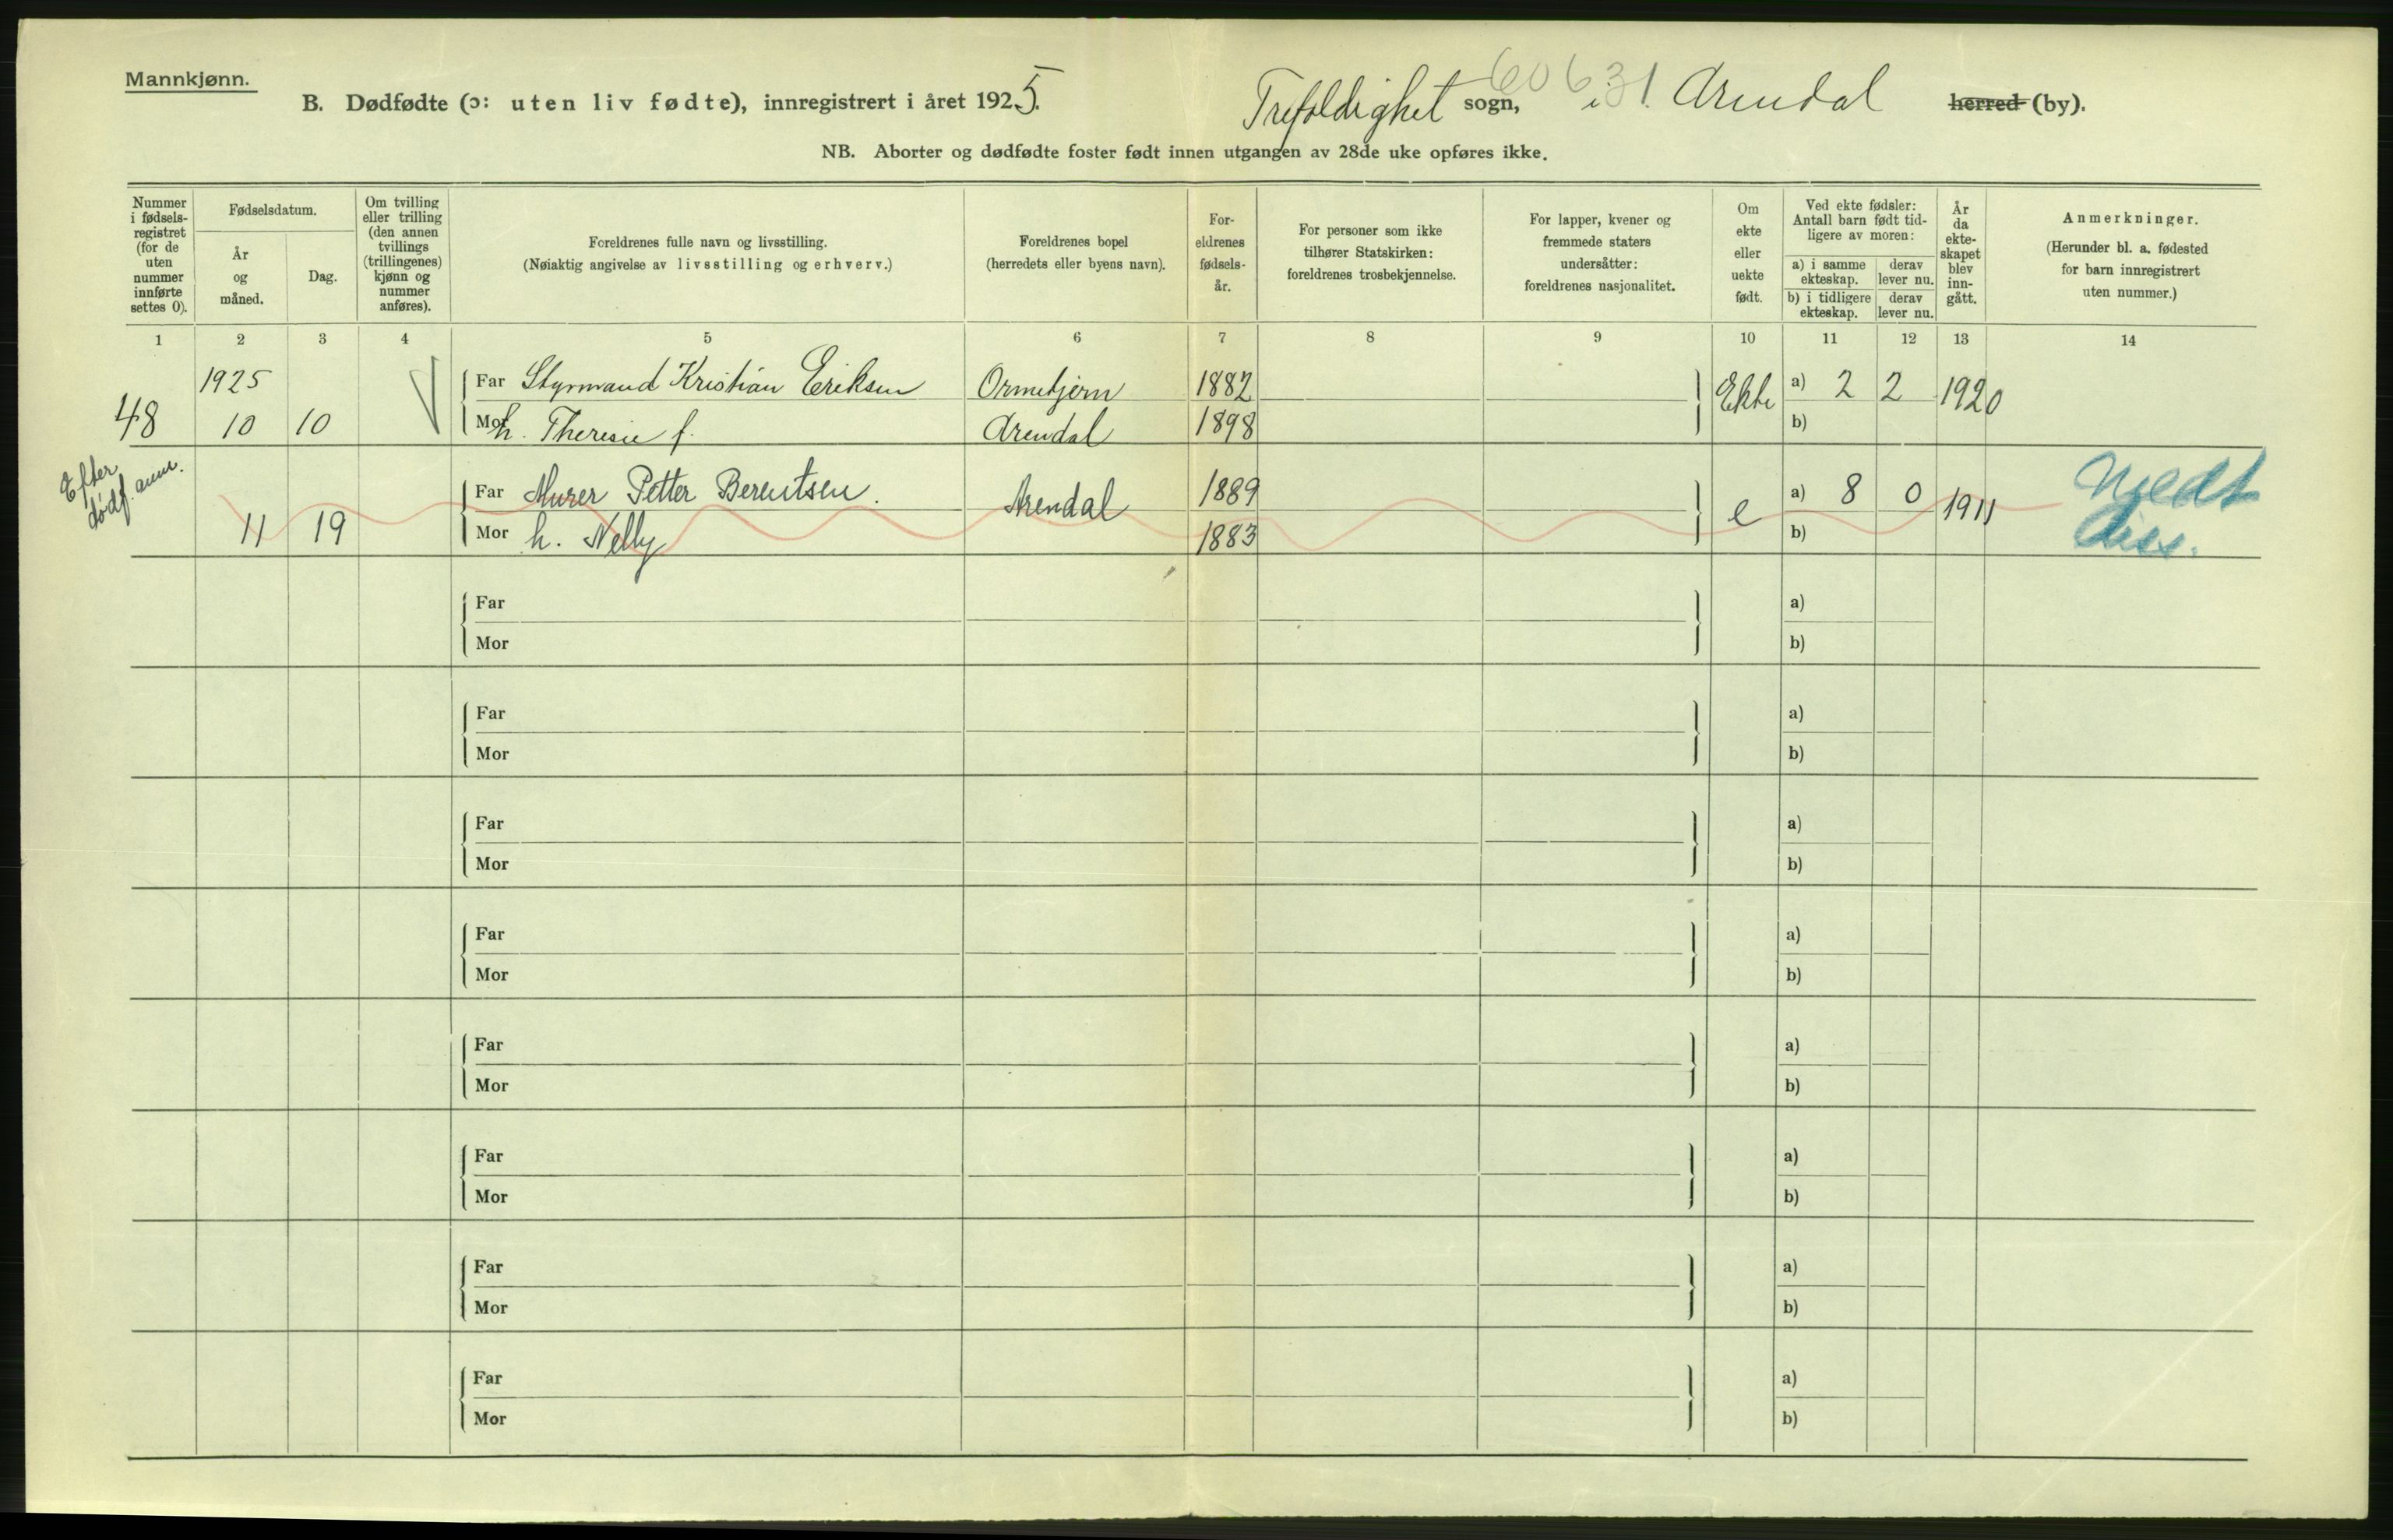 Mannkjønn.
B. Dødfødte (ɔ: uten liv fødte), innregistrert i året 1925. Trefoldighet sogn, i Arendal herred (by).
60631
NB. Aborter og dødfødte foster født innen utgangen av 28de uke opføres ikke.
Nummer i fødsels-registret (for de uten nummer innførte settes 0).
Fødselsdatum.
År og måned.
Dag.
Om tvilling eller trilling (den annen tvillings (trillingenes) kjønn og nummer anføres).
Foreldrenes fulle navn og livsstilling.
(Nøiaktig angivelse av livsstilling og erhverv.)
Foreldrenes bopel
(herredets eller byens navn).
For-eldrenes fødsels-år.
For personer som ikke tilhører Statskirken: foreldrenes trosbekjennelse.
For lapper, kvener og fremmede staters undersåtter: foreldrenes nasjonalitet.
Om ekte eller uekte født.
Ved ekte fødsler: Antall barn født tid-ligere av moren:
a) i samme ekteskap.
derav lever nu.
b) i tidligere ekteskap.
derav lever nu.
År da ekte-skapet blev inn-gått.
Anmerkninger.
(Herunder bl. a. fødested for barn innregistrert uten nummer.)
1 2 3 4 5 6 7 8 9 10 11 12 13 14
1925
Far Styrmand Kristian Eriksen 1882 Ekte a) 2 2 1920
48 10 10 Mor h. Theresie f. Arendal 1898 b)
Efter
dødf. anm.
Far Murer Petter Berentsen. Arendal 1889 e a) 8 0 1911
11 19 Mor h. Nelly 1883 b)
Far a)
Mor b)
Far a)
Mor b)
Far a)
Mor b)
Far a)
Mor b)
Far a)
Mor b)
Far a)
Mor b)
Far a)
Mor b)
Far a)
Mor b)